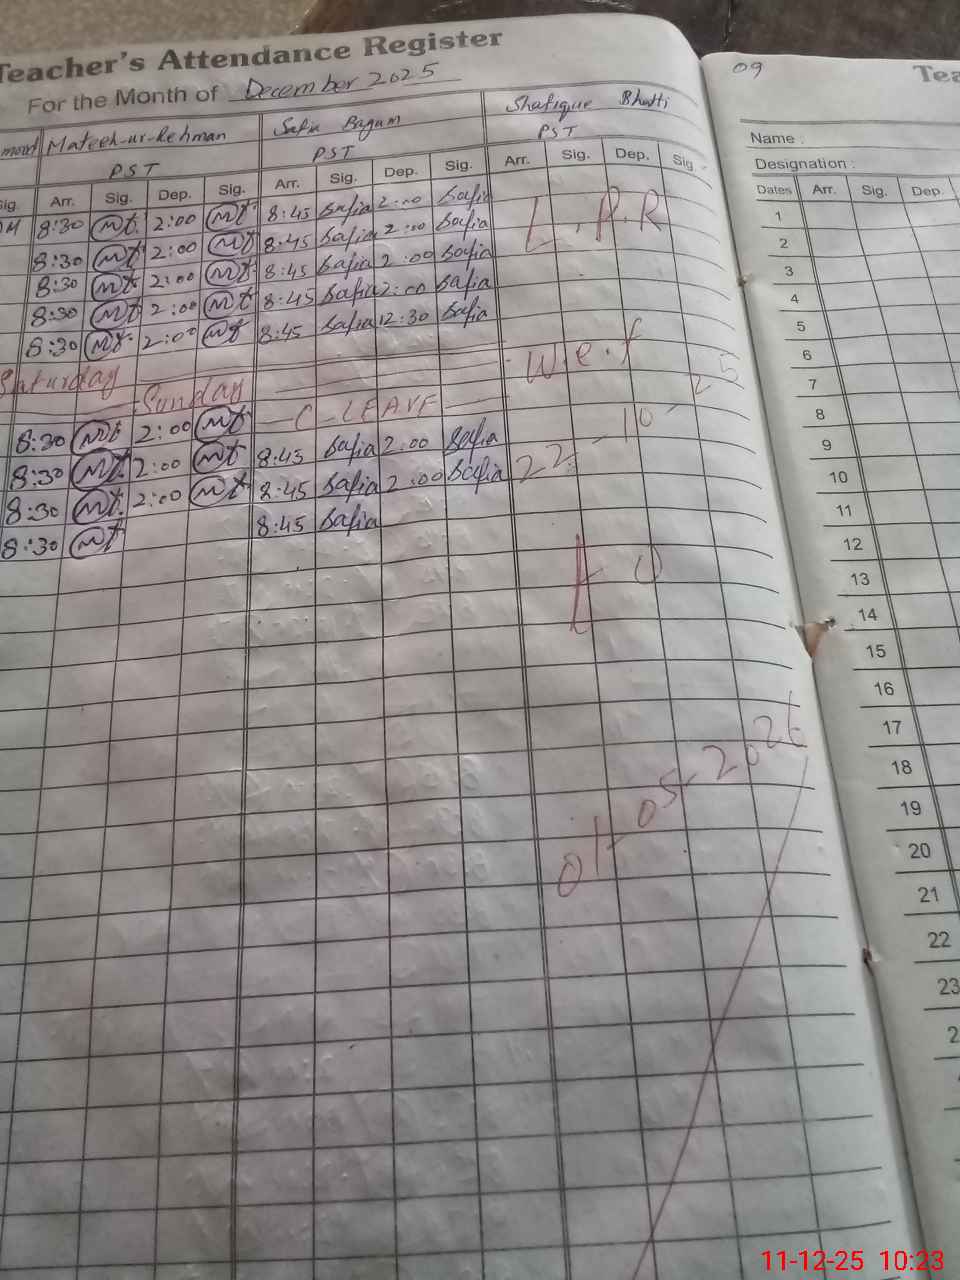 Teacher's Attendance Register
For the Month of December 2025
Mateeh-ur-Rehman Safia Bagum Shafique Bhatti
PST PST PST
Sig. Arr. Sig. Dep. Sig. Arr. Sig. Dep. Sig. Arr. Sig. Dep. Sig.
8:30 mt 2:00 mt 8:45 Safia 2:00 Safia
8:30 mt 2:00 mt 8:45 Safia 2:00 Safia
8:30 mt 2:00 mt 8:45 Safia 2:00 Safia
8:30 mt 2:00 mt 8:45 Safia 2:00 Safia
8:30 mt 2:00 mt 8:45 Safia 12:30 Safia
Saturday
Sunday
8:30 mt 2:00 mt C-LEAVE
8:30 mt 2:00 mt 8:45 Safia 2:00 Safia
8:30 mt 2:00 mt 8:45 Safia 2:00 Safia
8:30 mt 8:45 Safia
L.P.R
w.e.f
22-10-25
to
01-05-2026
09
Tea
Name :
Designation :
Dates Arr. Sig. Dep.
1
2
3
4
5
6
7
8
9
10
11
12
13
14
15
16
17
18
19
20
21
22
23
2
11-12-25 10:23